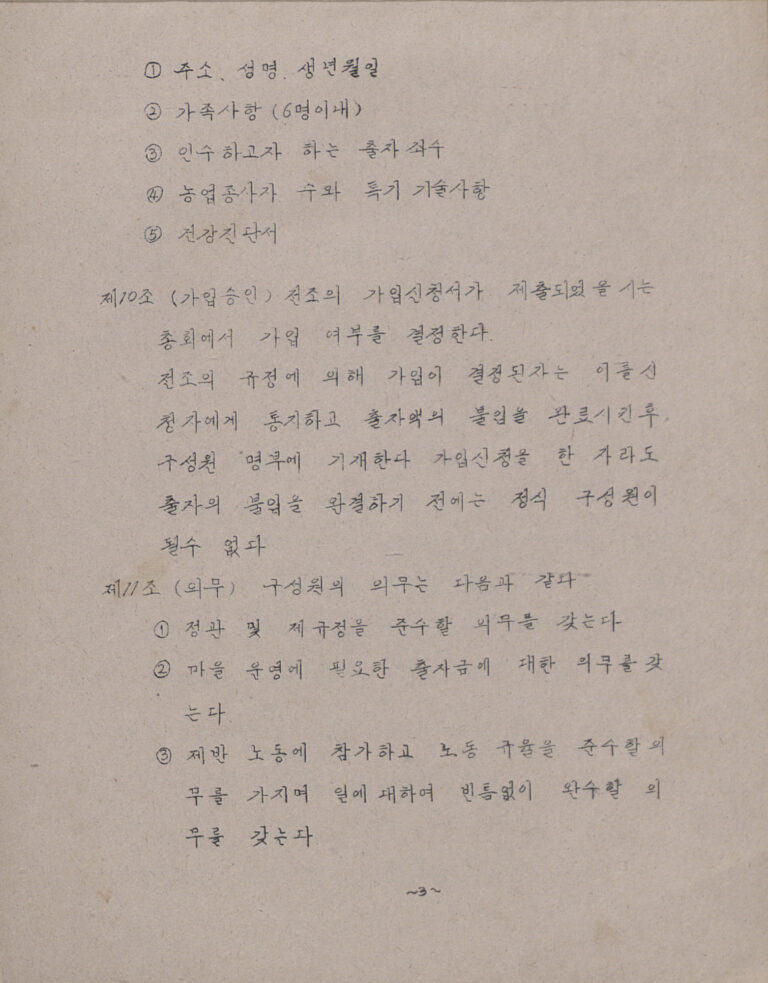 ① 주소、성명、생년월일
② 가족사항 (6명이내)
③ 인수하고자 하는 출자 좌수
④ 농업종사자 수와 특기 기술사항
⑤ 건강진단서
제10조 (가입승인) 전조의 가입신청서가 제출되었을 시는
총회에서 가입 여부를 결정한다.
전조의 규정에 의해 가입이 결정된자는 이를 신
청자에게 통지하고 출자액의 불입을 완료시킨후,
구성원 명부에 기개한다 가입신청을 한 자라도
출자의 불입을 완결하기 전에는 정식 구성원이
될수 없다
제11조 (의무) 구성원의 의무는 다음과 같다
① 정관 및 제규정을 준수할 의무를 갖는다
② 마을 운영에 필요한 출자금에 대한 의무를 갖
는다
③ 제반 노동에 참가하고 노동 규율을 준수할 의
무를 가지며 일에 대하여 빈틈없이 완수할 의
무를 갖는다
~3~